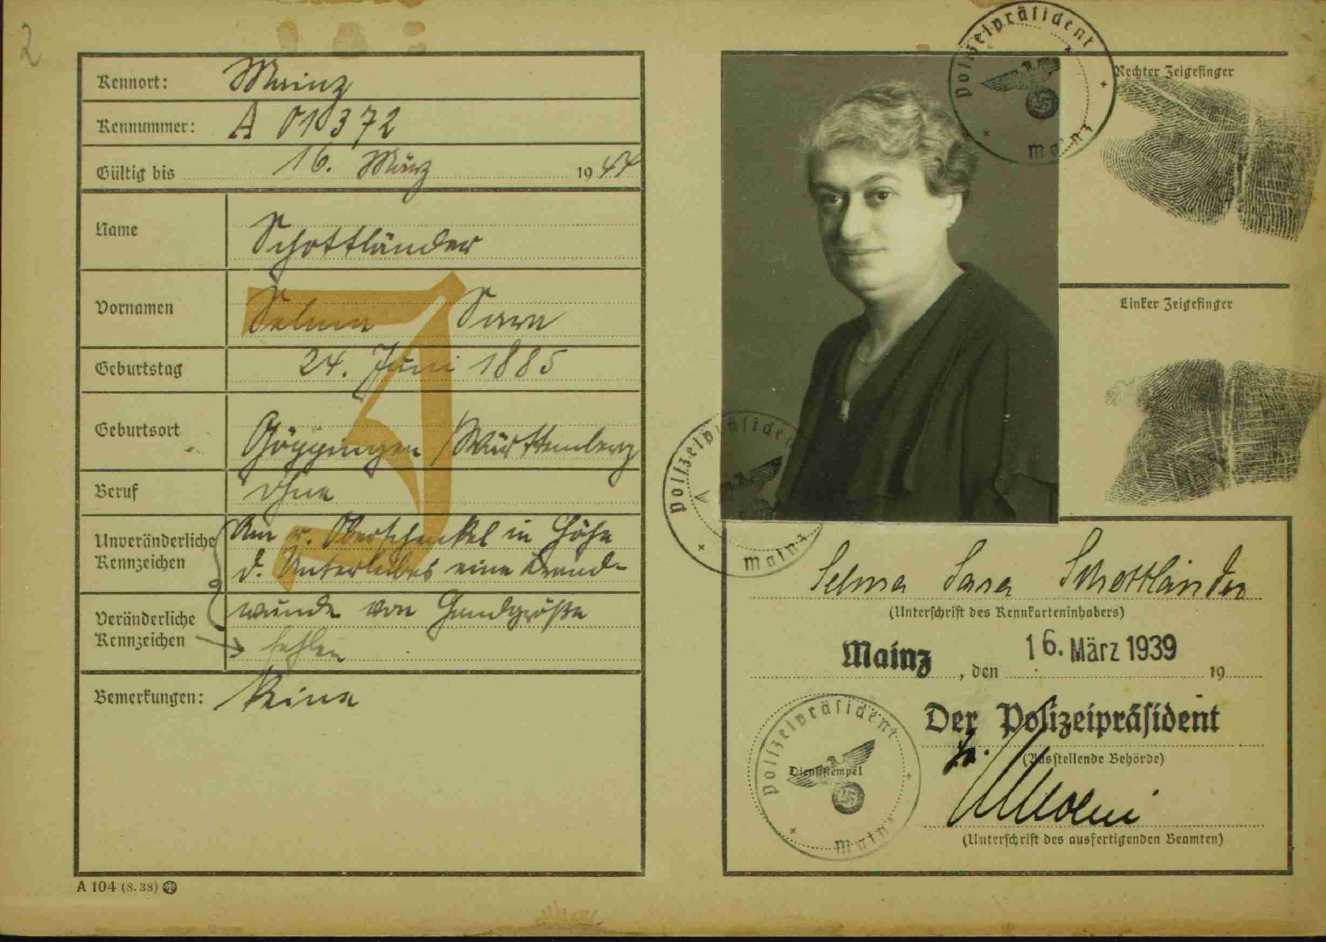 2
Kennort: Mainz
Kennummer: A 01372
Gültig bis 16. März 1944
Name Schottländer
Vornamen Selma Sara
J
Geburtstag 24. Juni 1885
Geburtsort Göppingen / Württemberg
Beruf ohne
Unveränderliche Kennzeichen Am r. Oberschenkel in Höhe
d. Unterleibes eine Brand-
Veränderliche Kennzeichen wunde von Handgröße
fehlen
Bemerkungen: Keine
A 104 (8. 38)
Polizeipräsident
Mainz
Rechter Zeigefinger
Linker Zeigefinger
Polizeipräsident
Mainz
Selma Sara Schottländer
(Unterschrift des Kennkarteninhabers)
Mainz, den 16. März 1939 19
Der Polizeipräsident
(Ausstellende Behörde)
Polizeipräsident
Dienststempel
Mainz
(Unterschrift des ausfertigenden Beamten)